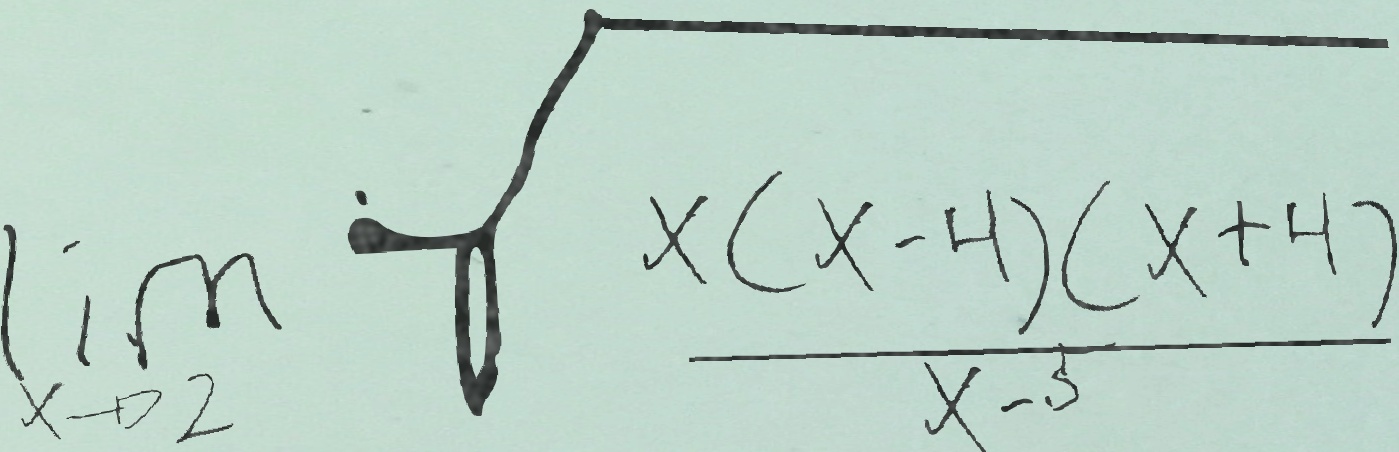 lim √
x→2
x(x-4)(x+4)
x-5